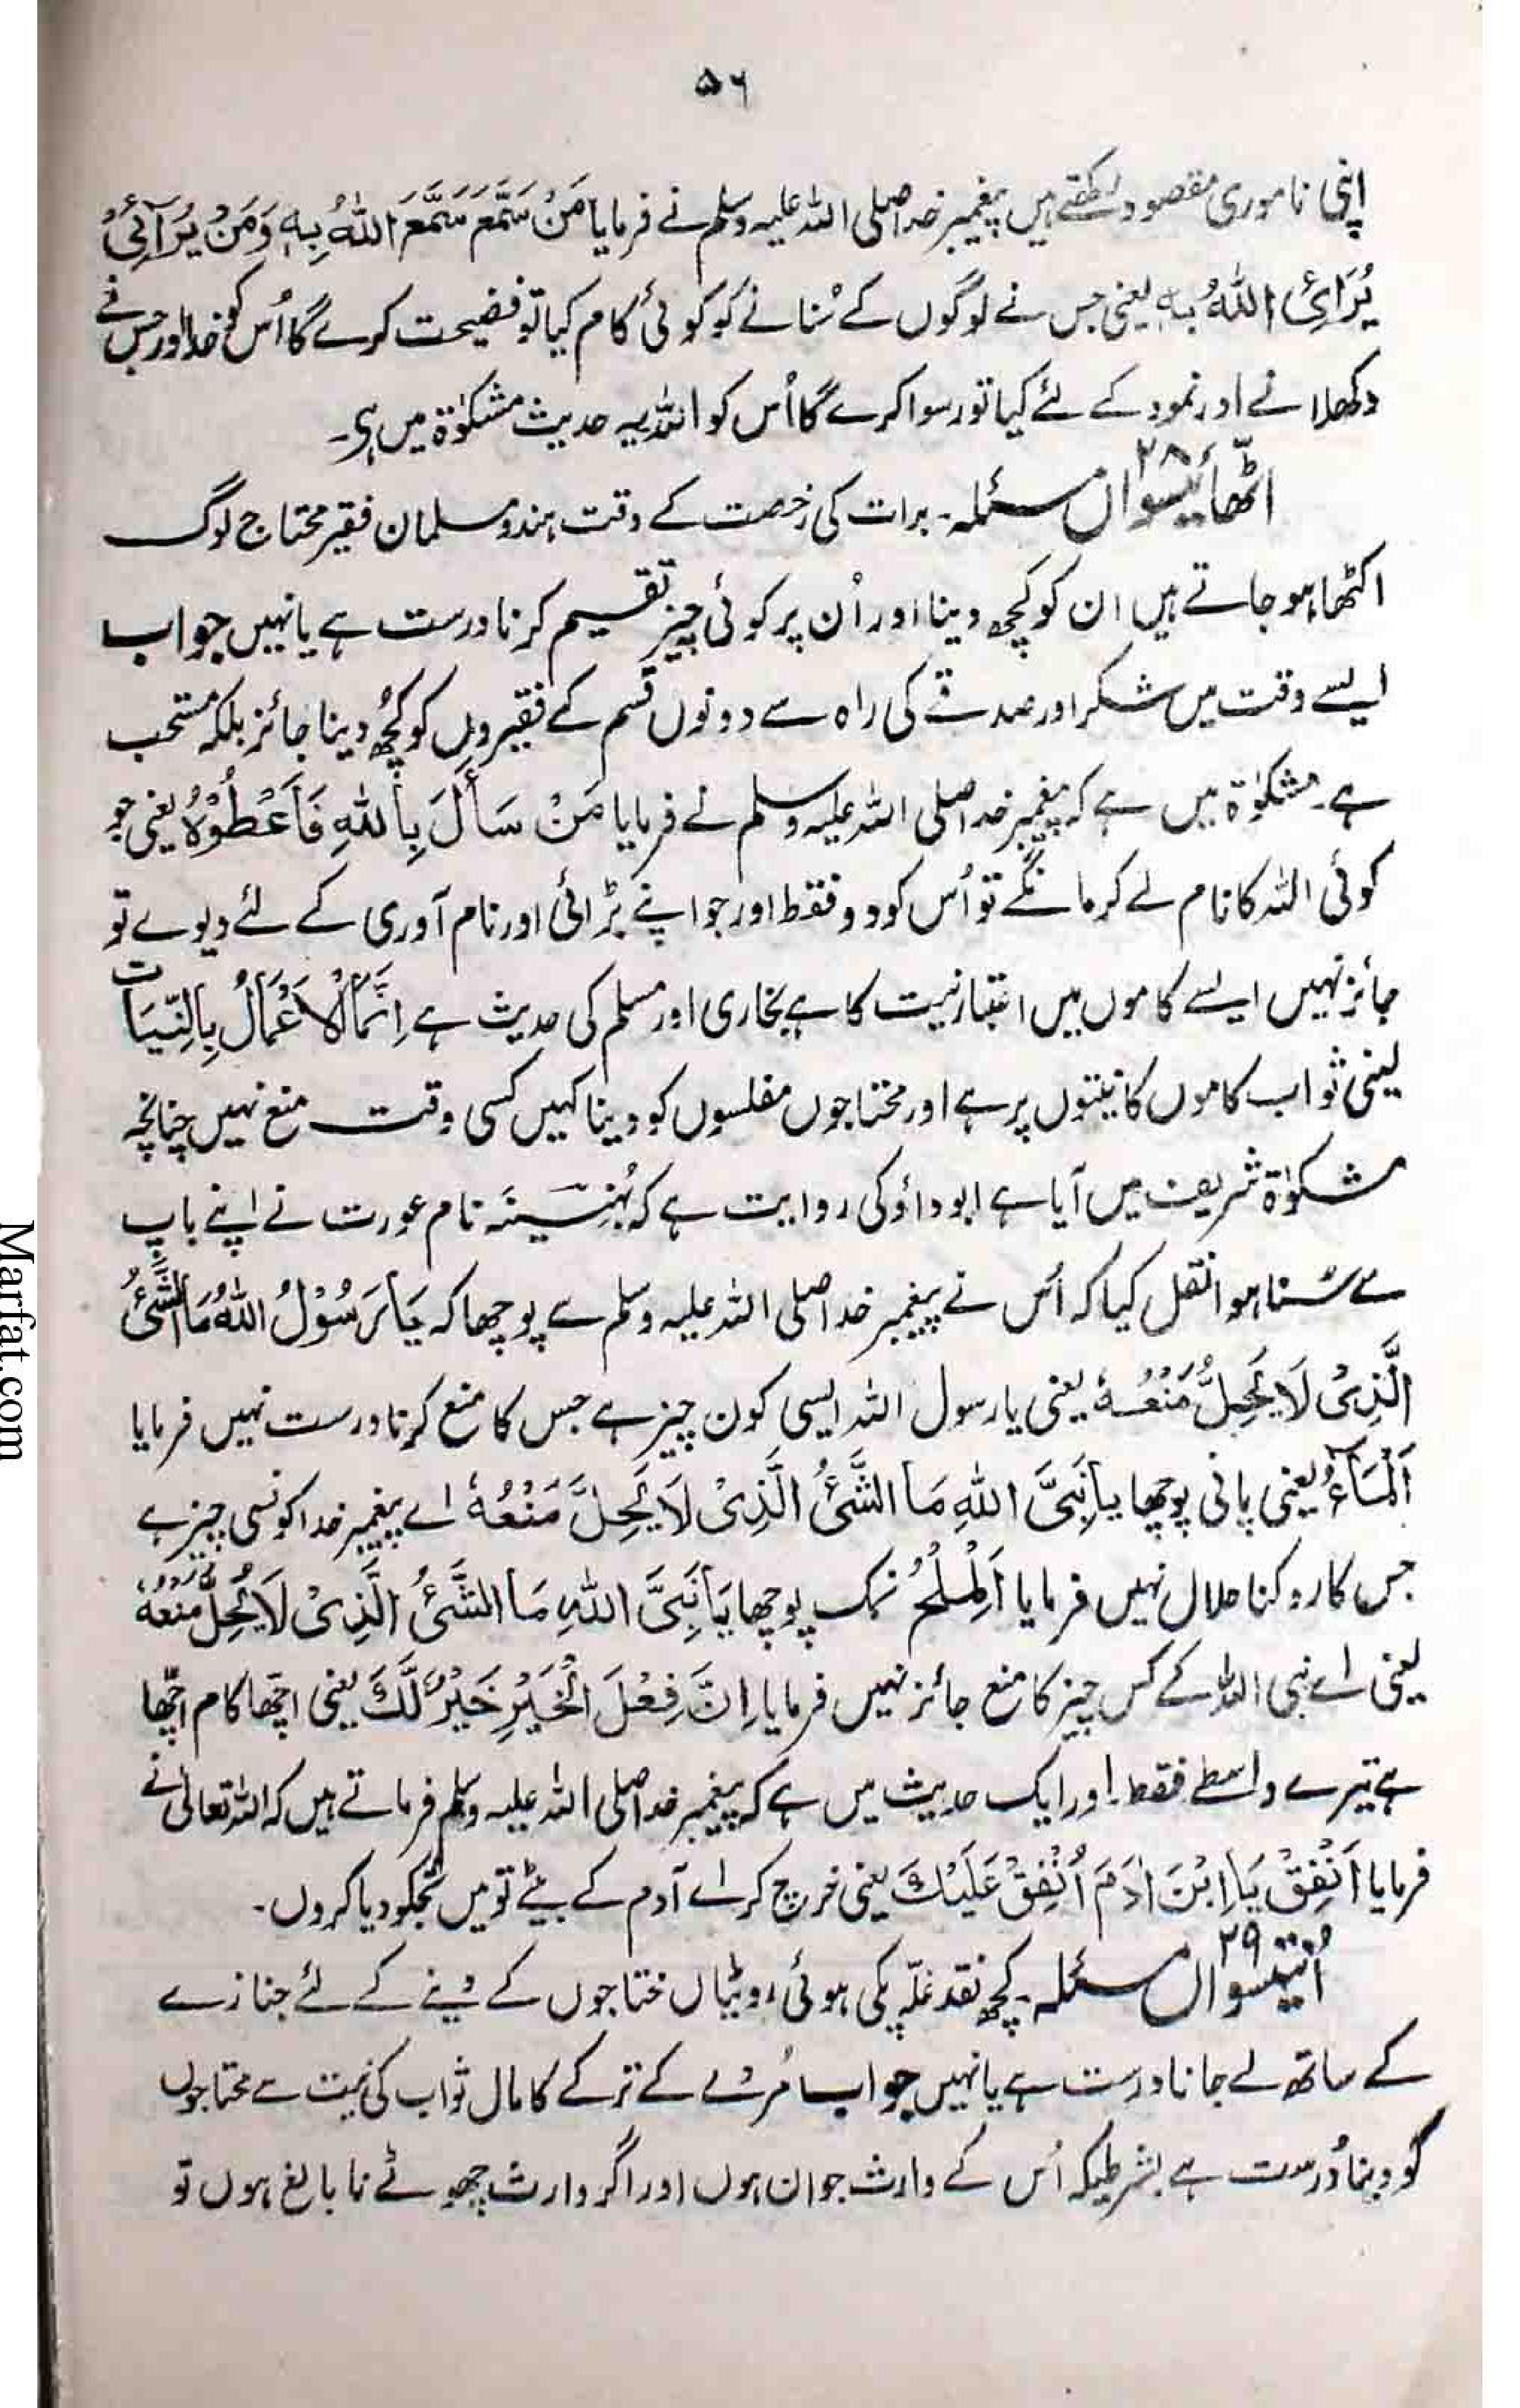 ۵۶
اپنی ناموری مقصود رکھتے ہیں پیغمبر خدا صلی اللہ علیہ وسلم نے فرمایا مَنْ سَمَّعَ سَمَّعَ اللّٰہُ بِہٖ وَمَنْ یُرَآئِیْ
یُرَائِی اللّٰہُ بِہٖ یعنی جس نے لوگوں کے سُنانے کو کوئی کام کیا تو فضیحت کرے گا اُس کو خدا اور جس نے
دکھلانے اور نمود کے لئے کیا تو رسوا کرے گا اُس کو اللہ یہ حدیث مشکوٰۃ میں ہی۔
اٹھائیسواں ۲۸ مسئلہ۔ برات کی رخصت کے وقت ہندو مسلمان فقیر محتاج لوگ
اکٹھا ہو جاتے ہیں ان کو کچھ دینا اور اُن پر کوئی چیز تقسیم کرنا درست ہے یا نہیں جواب
ایسے وقت میں شکر اور صدقے کی راہ سے دونوں قسم کے فقیروں کو کچھ دینا جائز بلکہ مستحب
ہے۔ مشکوٰۃ میں ہے کہ پیغمبر خدا صلی اللہ علیہ وسلم نے فرمایا مَنْ سَأَلَ بِاللّٰہِ فَاَعْطُوْہُ یعنی جو
کوئی اللہ کا نام لے کر مانگے تو اُس کو دو فقط اور جو اپنے بڑائی اور نام آوری کے لئے دیوے تو
جائز نہیں ایسے کاموں میں اعتبار نیت کا ہے بخاری اور مسلم کی حدیث ہے اِنَّمَا الْاَعْمَالُ بِالنِّیَات
یعنی ثواب کاموں کا نیتوں پر ہے اور محتاجوں مفلسوں کو دینا کہیں کسی وقت منع نہیں چنانچہ
مشکوٰۃ شریف میں آیا ہے ابو داؤد کی روایت ہے کہ بُہَیْسَہ نام عورت نے اپنے باپ
سے سُنا ہوا نقل کیا کہ اُس نے پیغمبر خدا صلی اللہ علیہ وسلم سے پوچھا کہ یَا رَسُوْلُ اللّٰہُ مَا الشَّیْئُ
الَّذِیْ لَا یَحِلُّ مَنْعُہٗ یعنی یا رسول اللہ ایسی کون چیز ہے جس کا منع کرنا درست نہیں فرمایا
اَلْمَآءُ یعنی پانی پوچھا یا نَبِیَّ اللّٰہِ مَا الشَّیْئُ الَّذِیْ لَا یَحِلَّ مَنْعُہٗ اے پیغمبر خدا کونسی چیز ہے
جس کا روکنا حلال نہیں فرمایا اَلْمِلْحُ نمک پوچھا یَا نَبِیَّ اللّٰہِ مَا الشَّیْئُ الَّذِیْ لَا یَحِلُّ مَنْعُہٗ
یعنی اے نبی اللہ کے کس چیز کا منع جائز نہیں فرمایا اِنَّ فِعْلَ الْخَیْرِ خَیْرٌ لَّکَ یعنی اچھا کام اچھا
ہے تیرے واسطے فقط۔ اور ایک حدیث میں ہے کہ پیغمبر خدا صلی اللہ علیہ وسلم فرماتے ہیں کہ اللہ تعالیٰ نے
فرمایا اَنْفِقْ یَا اِبْنَ اٰدَمَ اُنْفِقْ عَلَیْکَ یعنی خرچ کر اے آدم کے بیٹے تو میں تجکو دیا کروں۔
اُنتیسواں ۲۹ مسئلہ۔ کچھ نقد غلّہ پکی ہوئی روٹیاں محتاجوں کے دینے کے لئے جنازے
کے ساتھ لے جانا درست ہے یا نہیں جواب مُردے کے ترکے کا مال ثواب کی نیت سے محتاجوں
کو دینا دُرست ہے بشرطیکہ اُس کے وارث جوان ہوں اور اگر وارث چھوٹے نابالغ ہوں تو
Marfat.com